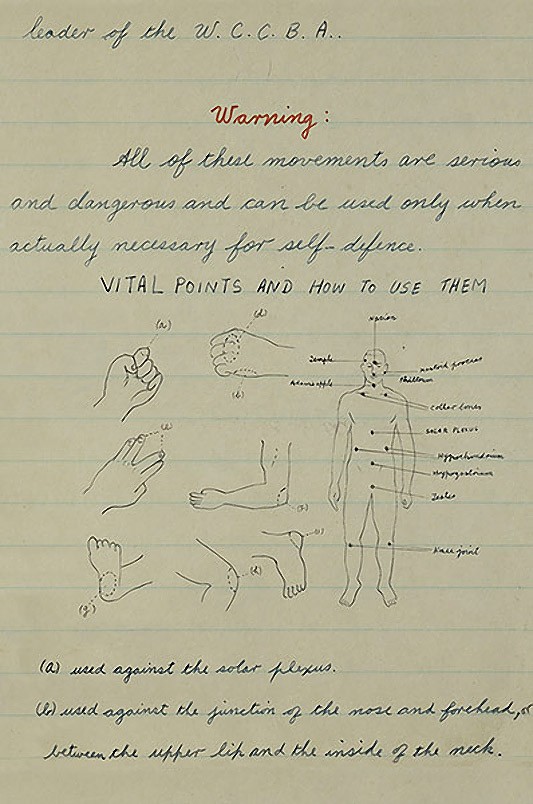 leader of the W. C. C. B. A..
Warning:
All of these movements are serious
and dangerous and can be used only when
actually necessary for self-defence.
VITAL POINTS AND HOW TO USE THEM
(a)
(d)
Nasion
Temple
Mastoid process
Adams apple
Philtrum
(b)
Collar bones
SOLAR PLEXUS
Hypochondrium
Hypogastrium
Testes
Knee joint
(g)
(a) used against the solar plexus.
(b) used against the junction of the nose and forehead, or
between the upper lip and the inside of the neck.